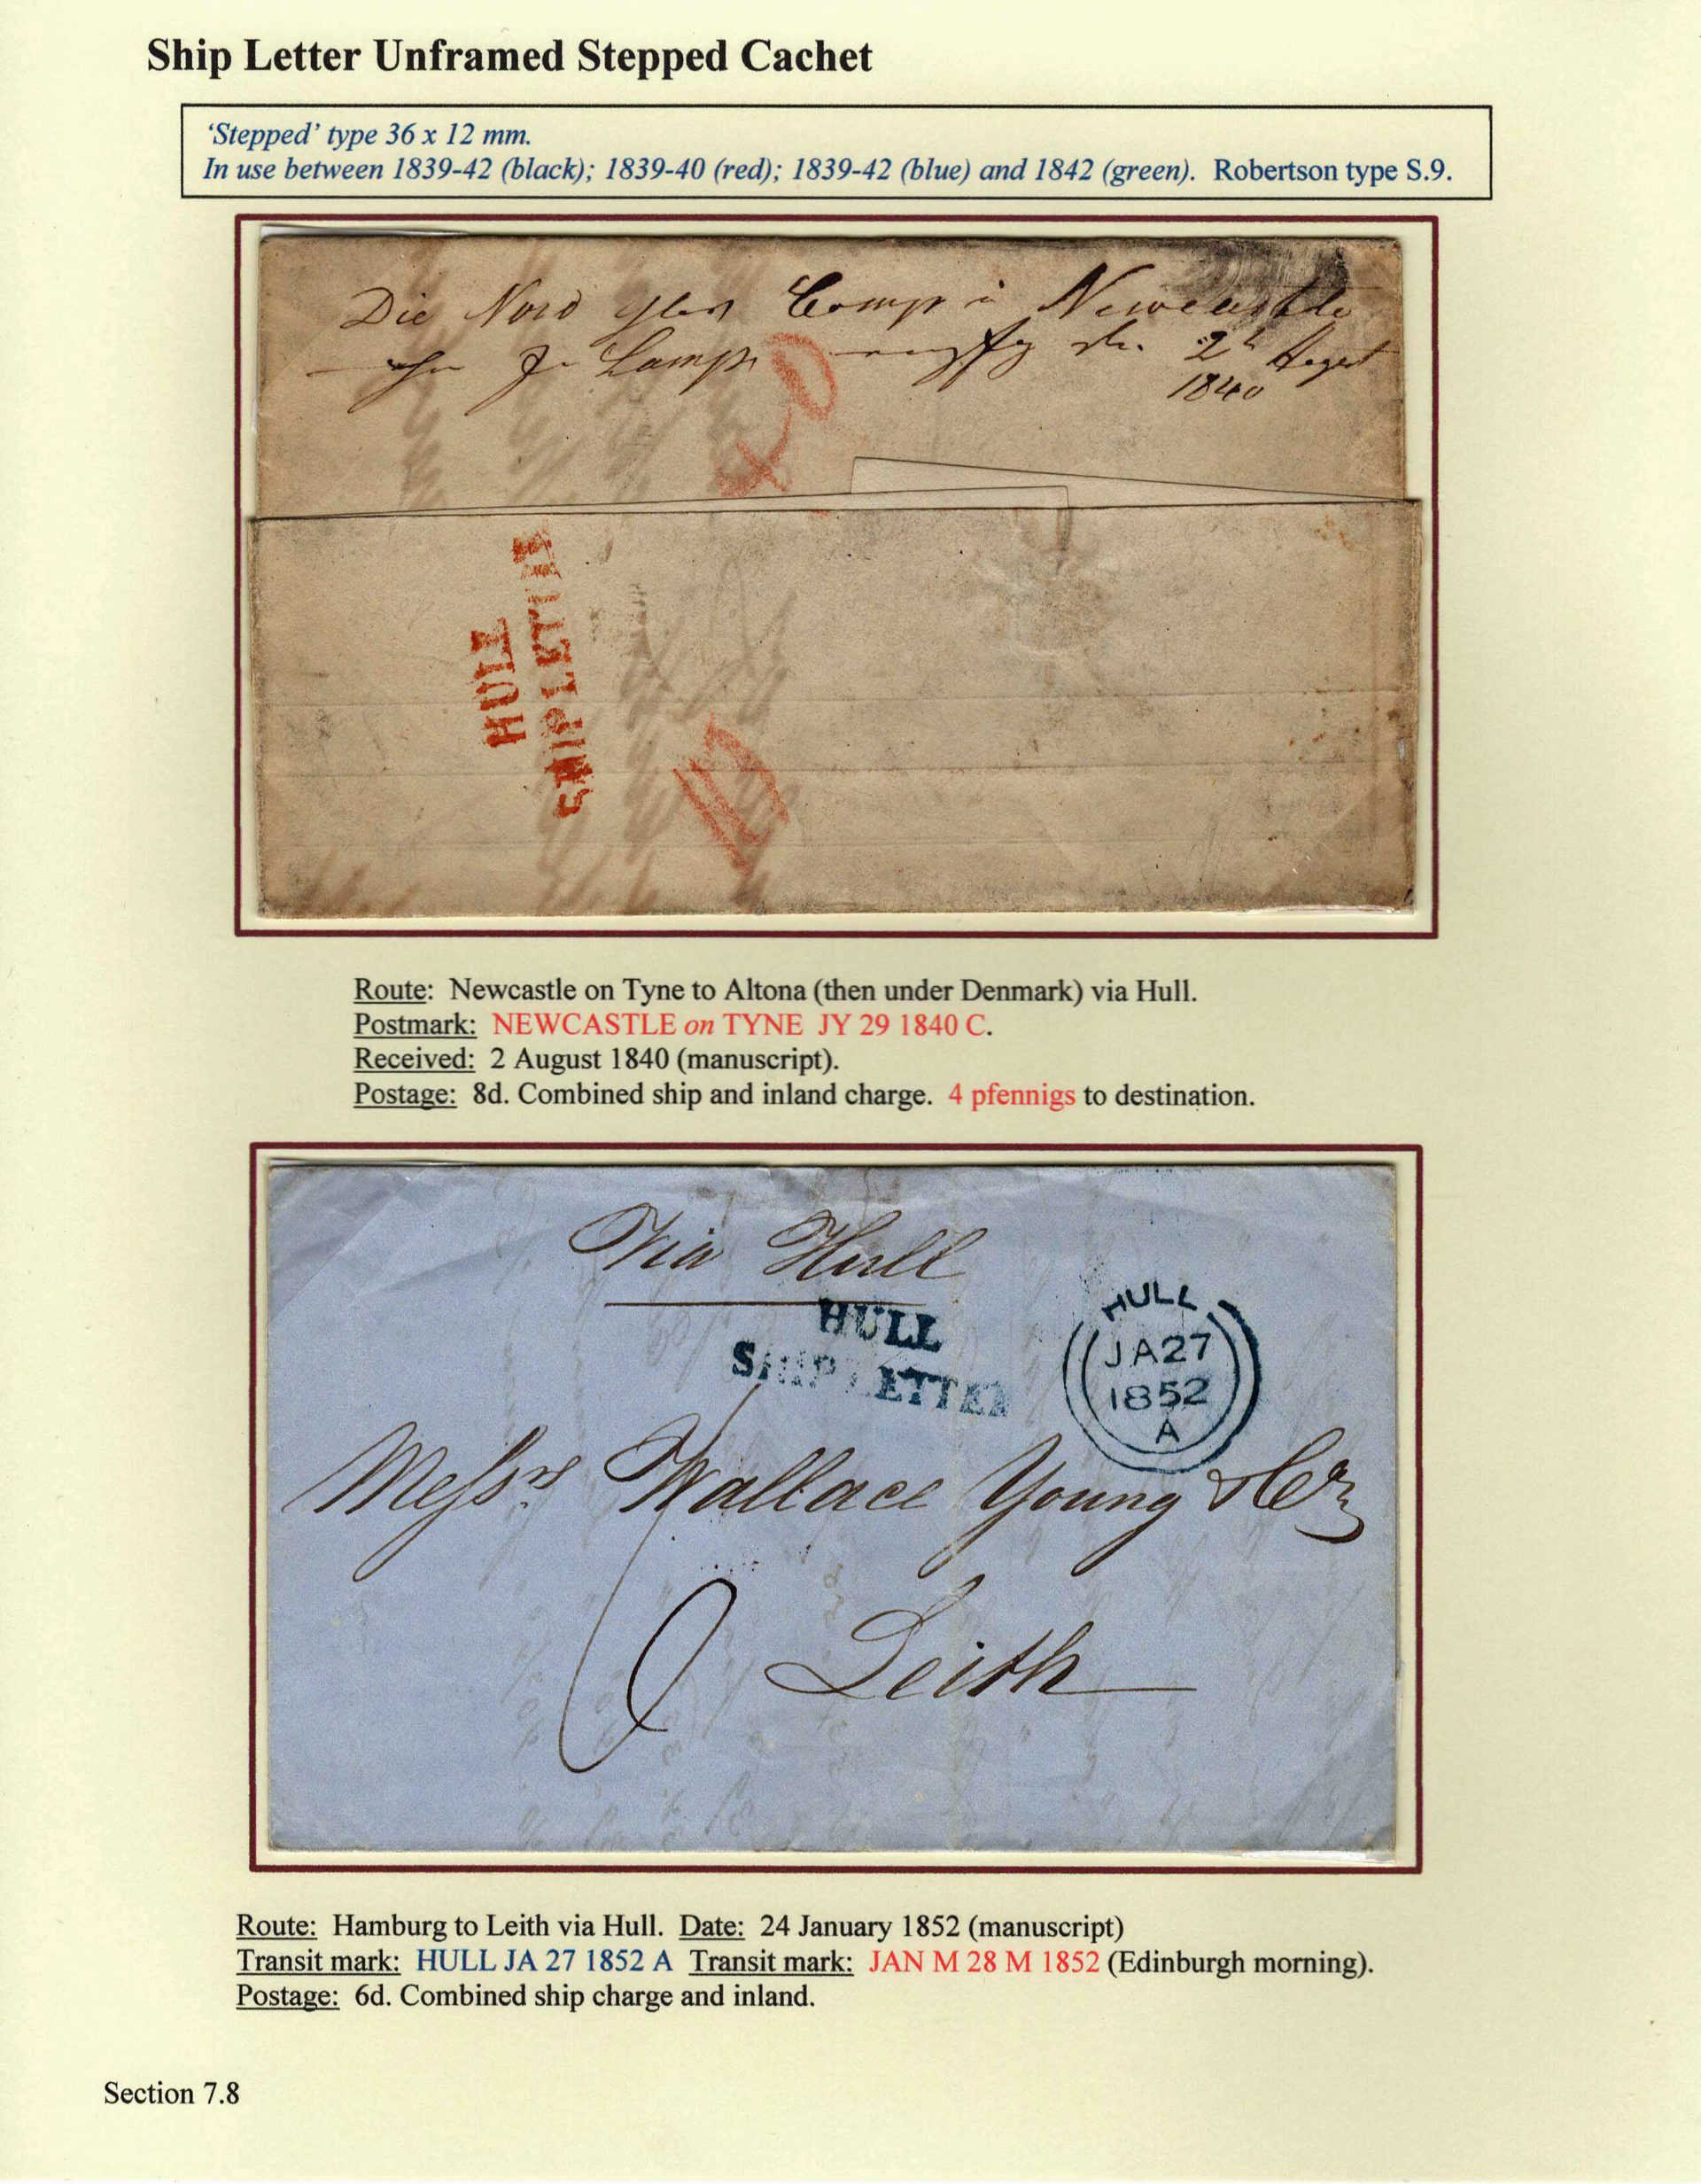 Ship Letter Unframed Stepped Cachet
‘Stepped’ type 36 x 12 mm.
In use between 1839-42 (black); 1839-40 (red); 1839-42 (blue) and 1842 (green). Robertson type S.9.
Die Nord Comp i Newcastle
2 August
1840
HULL
SHIP LETTER
Route: Newcastle on Tyne to Altona (then under Denmark) via Hull.
Postmark: NEWCASTLE on TYNE JY 29 1840 C.
Received: 2 August 1840 (manuscript).
Postage: 8d. Combined ship and inland charge. 4 pfennigs to destination.
Via Hull
HULL
SHIP LETTER
HULL
JA27
1852
A
Messrs Wallace Young & Co
6
Leith
Route: Hamburg to Leith via Hull. Date: 24 January 1852 (manuscript)
Transit mark: HULL JA 27 1852 A Transit mark: JAN M 28 M 1852 (Edinburgh morning).
Postage: 6d. Combined ship charge and inland.
Section 7.8